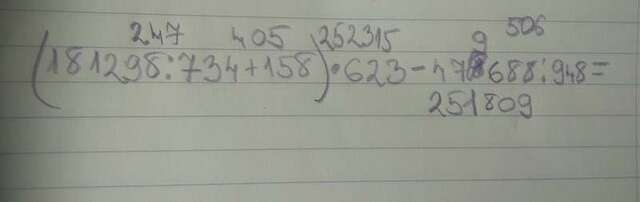 247 405 252315 9 506
(181298:734+158)·623-478688:948=
251809